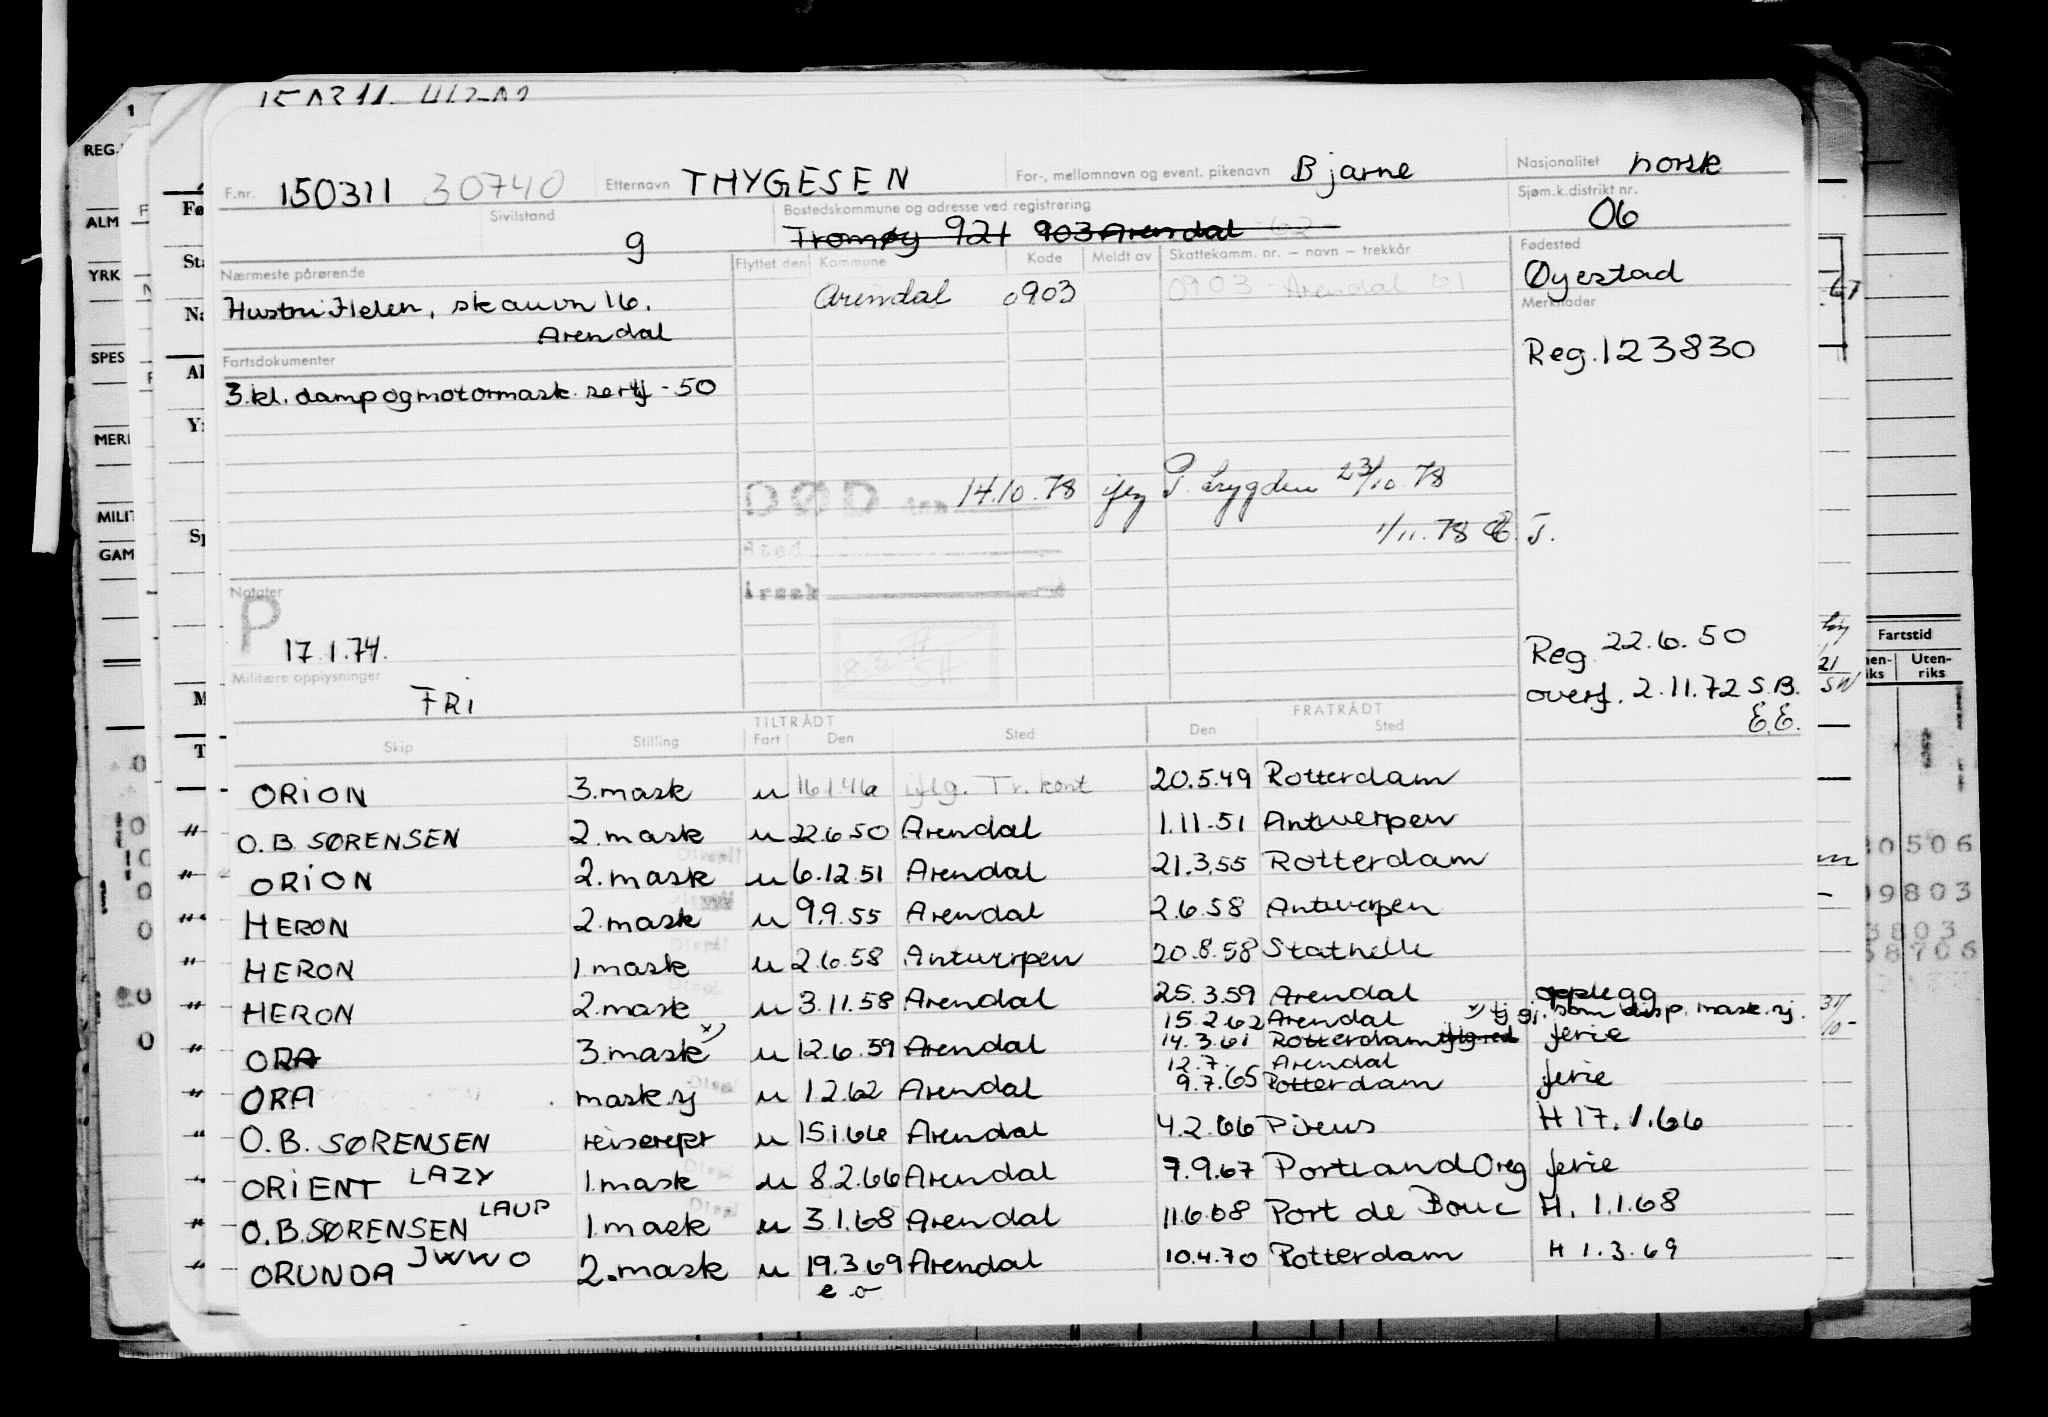 F.nr. 150311 30740 Etternavn THYGESEN For-, mellomnavn og event. pikenavn Bjarne Nasjonalitet norsk
Sivilstand g Bostedskommune og adresse ved registrering Sjøm.k.distrikt nr. 06
Tromøy 921 903 Arendal
Nærmeste pårørende Flyttet den Kommune Kode Meldt av Skattekomm. nr. — navn — trekkår Fødested Øyestad
Hustru Helen, skauvn 16. Arendal 0903 0903 Arendal 01 Merknader
Arendal
Fartsdokumenter Reg. 123830
3.kl. damp og motormask. sertf -50
DØD den 14.10.78 23/10.78
Sted
Årsak
1/11.78
Notater
P
17.1.74.
Reg 22.6.50
Militære opplysninger
FRI
overf. 2.11.72 S.B.
E.E.
TILTRÅDT FRATRÅDT
Skip Stilling Fart Den Sted Den Sted
ORION 3.mask u 16.1.46 iflg. Tr. kont 20.5.49 Rotterdam
" O.B. SØRENSEN 2.mask u 22.6.50 Arendal 1.11.51 Antwerpen
" ORION 2.mask u 6.12.51 Arendal 21.3.55 Rotterdam
" HERON 2.mask u 9.9.55 Arendal 2.6.58 Antwerpen
" HERON 1 mask u 2.6.58 Antwerpen 20.8.58 Stathelle
" HERON 2.mask u 3.11.58 Arendal 25.3.59 Arendal opplegg
15.2.62 Arendal x) tj gj. som disp. mask.sj.
" ORA 3.mask x) u 12.6.59 Arendal 14.3.61 Rotterdam ferie
12.7. Arendal
" ORA mask.sj u 1.2.62 Arendal 9.7.65 Rotterdam ferie
" O.B. SØRENSEN reiserepr u 15.1.66 Arendal 4.2.66 Pireus H 17.1.66
" ORIENT LAZY 1.mask u 8.2.66 Arendal 7.9.67 Portland Oreg ferie
" O.B.SØRENSEN LAUP 1.mask u 3.1.68 Arendal 11.6.68 Port de Bouc H. 1.1.68
" ORUNDA JWWO 2.mask u 19.3.69 Arendal 10.4.70 Rotterdam H 1.3.69
e o
REG.
ALM
YRK
SPES
MERI
MILIT
GAM
Fartstid
Uten-
riks